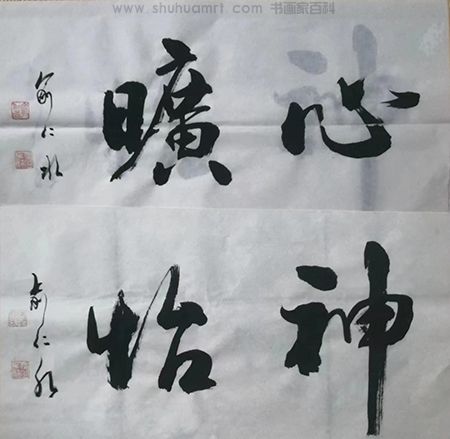 www.shuhuamrt.com 书画家百科
心曠
俞仁水
神怡
俞仁水